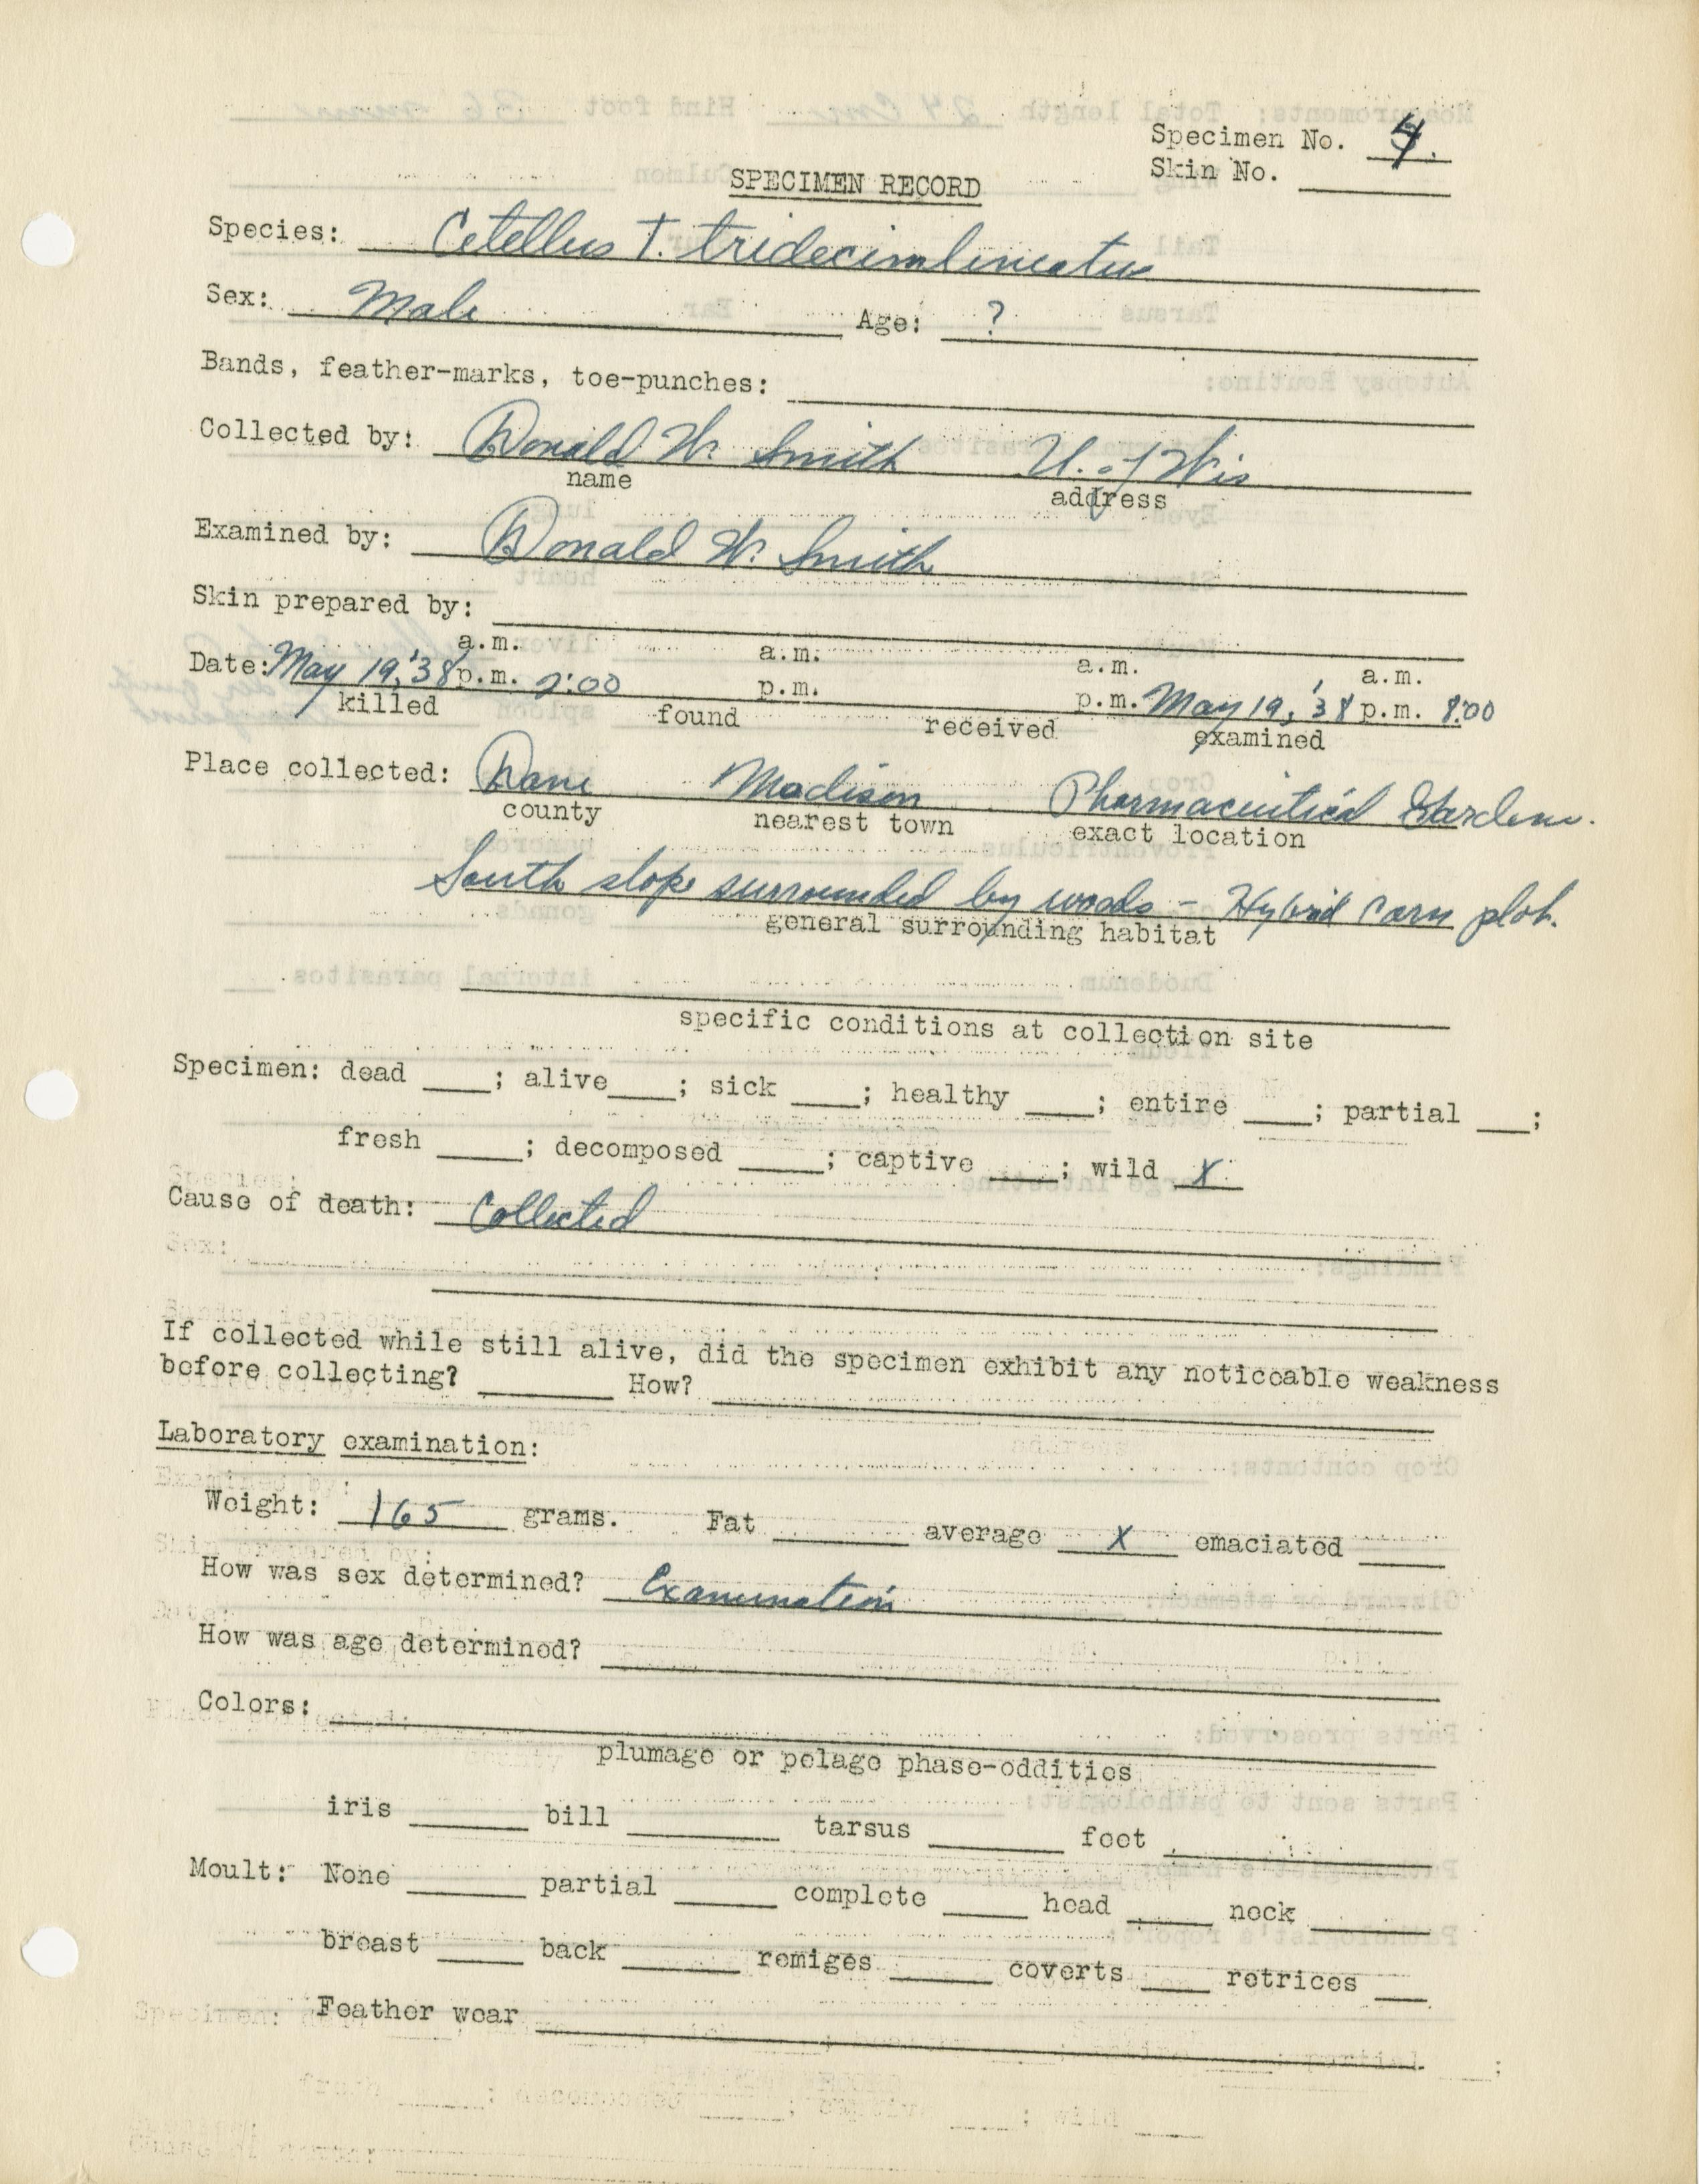 Specimen No. 4.
Skin No. ______
SPECIMEN RECORD
Species: Citellus T. tridecimlineatus
Sex: Male Age: ?
Bands, feather-marks, toe-punches: ______
Collected by: Donald W. Smith U. of Wis
name address
Examined by: Donald W. Smith
Skin prepared by: ______
a.m. a.m. a.m. a.m.
Date: May 19, '38 p.m. 2:00 p.m. p.m. May 19, '38 p.m. 8:00
killed found received examined
Place collected: Dane Madison Pharmaceutical Gardens.
county nearest town exact location
South slope surrounded by woods - Hybrid corn plot.
general surrounding habitat
specific conditions at collection site
Specimen: dead ____; alive____; sick ____; healthy ____; entire ____; partial ___;
fresh _____; decomposed _____; captive ____; wild X
Cause of death: Collected
If collected while still alive, did the specimen exhibit any noticeable weakness
before collecting? ________ How? ________
Laboratory examination:
Weight: 165 grams. Fat ________ average X emaciated _____
How was sex determined? Examination
How was age determined? ________
Colors: ________
plumage or pelage phase-oddities
iris _______ bill _________ tarsus ________ foot ________
Moult: None _______ partial ______ complete _____ head _____ neck _______
breast _____ back _______ remiges ______ coverts ____ retrices ___
Feather wear ________